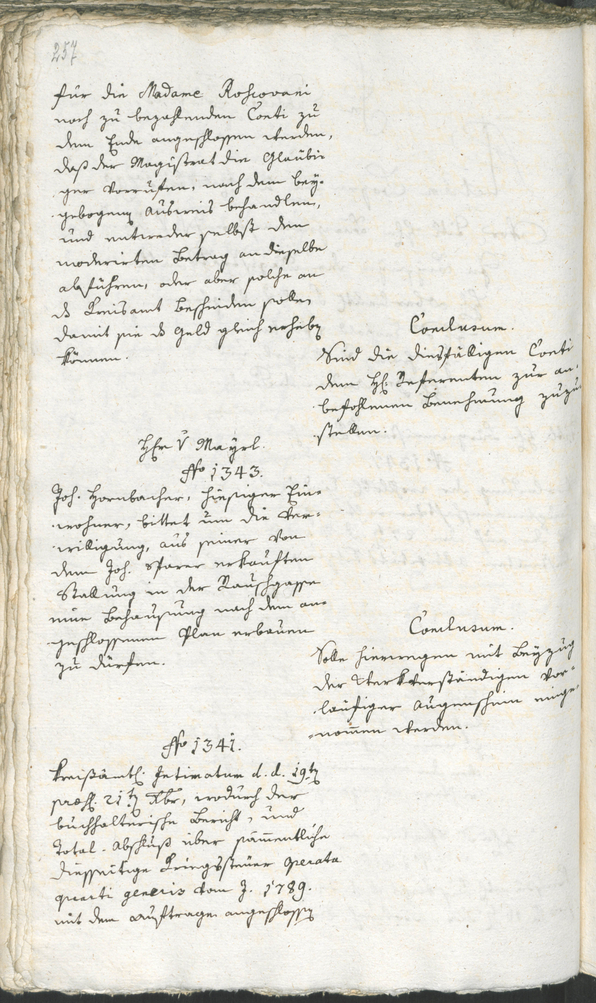 257
für die Madame Roscovani
noch zu bezahlenden Conti zu
dem Ende angeschlossen werden,
daß der Magistrat die Glaubi-
ger vorrufen, nach dem bey-
gebogenen Ausweis behandlen,
und entweder selbst den
moderirten Betrag an dieselbe
abführen, oder aber solche an
ds Kreisamt bescheiden solle,
damit sie ds Geld gleich erheben
können.
Conclusum.
Seind die diesfälligen Conti
dem H: Referenten zur an-
befohlenen Benehmung zuzu-
stellen.
Hr v Mayrl.
No 1343.
Joh. Hornbacher, hiesiger Ein-
wohner, bittet um die Ver-
willigung, aus seiner von
dem Joh. erkauften
Stallung in der Rauschgasse
eine Behausung nach dem an-
geschlossenen Plan erbauen
zu dürfen.
Conclusum.
Solle hierwegen mit Beyzug
der Werkverständigen vor-
läufiger Augenschein einge-
nommen werden.
No 1341.
Kreißämtl. Intimatum d. d. 19ten
praes. 21ten Xbr, wodurch der
buchhalterische Bericht, und
Total-Abschluß über sämmentliche
diesseitige Kriegssteuer Operata
quarti generis vom J. 1789.
mit dem Auftrage angeschlossen